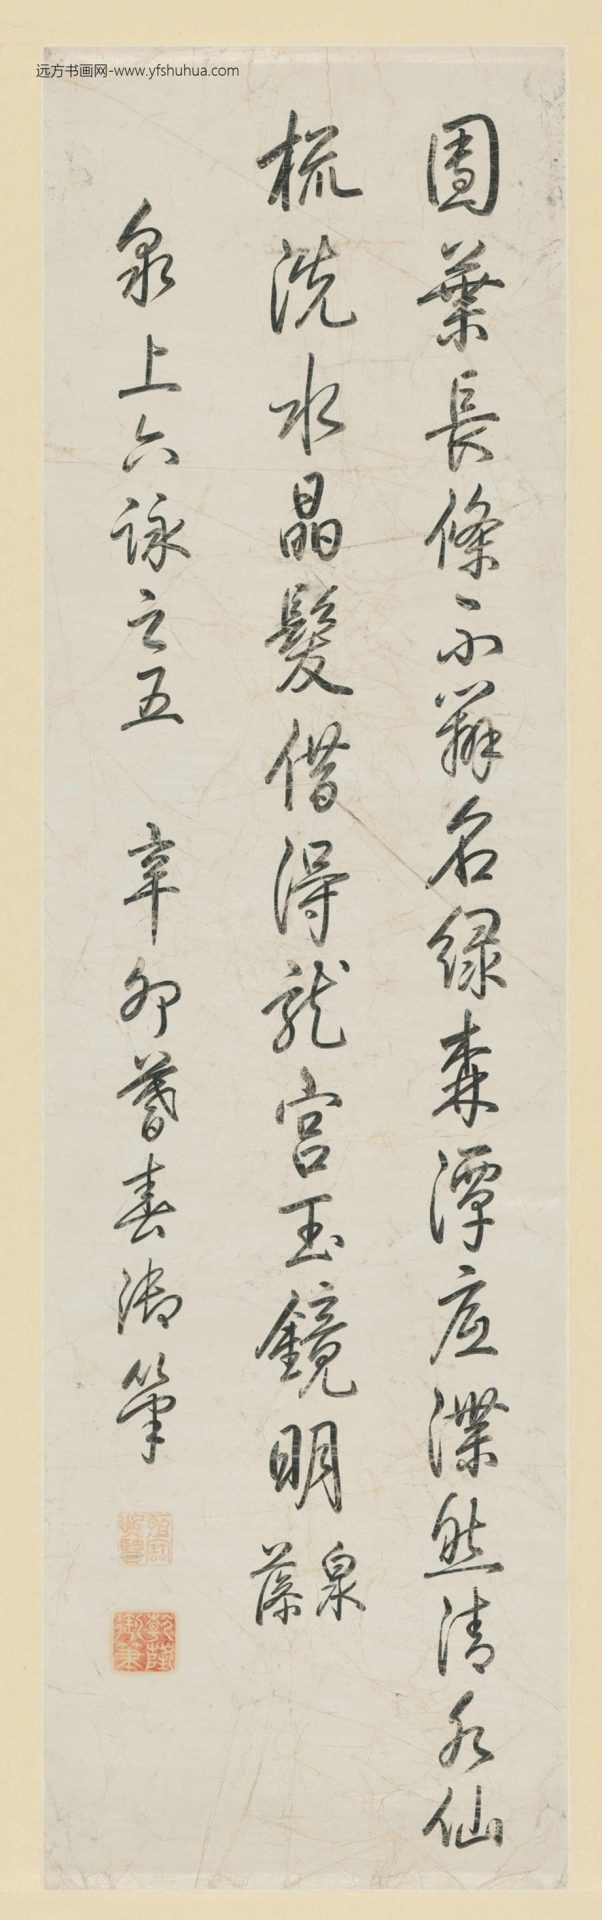 远方书画网-www.yfshuhua.com
圓葉長條不辨名綠森潭底渫然清水仙
梳洗水晶髮借得龍宮玉鏡明 泉藻
泉上六詠之五 辛卯暮春御筆
乾隆御筆